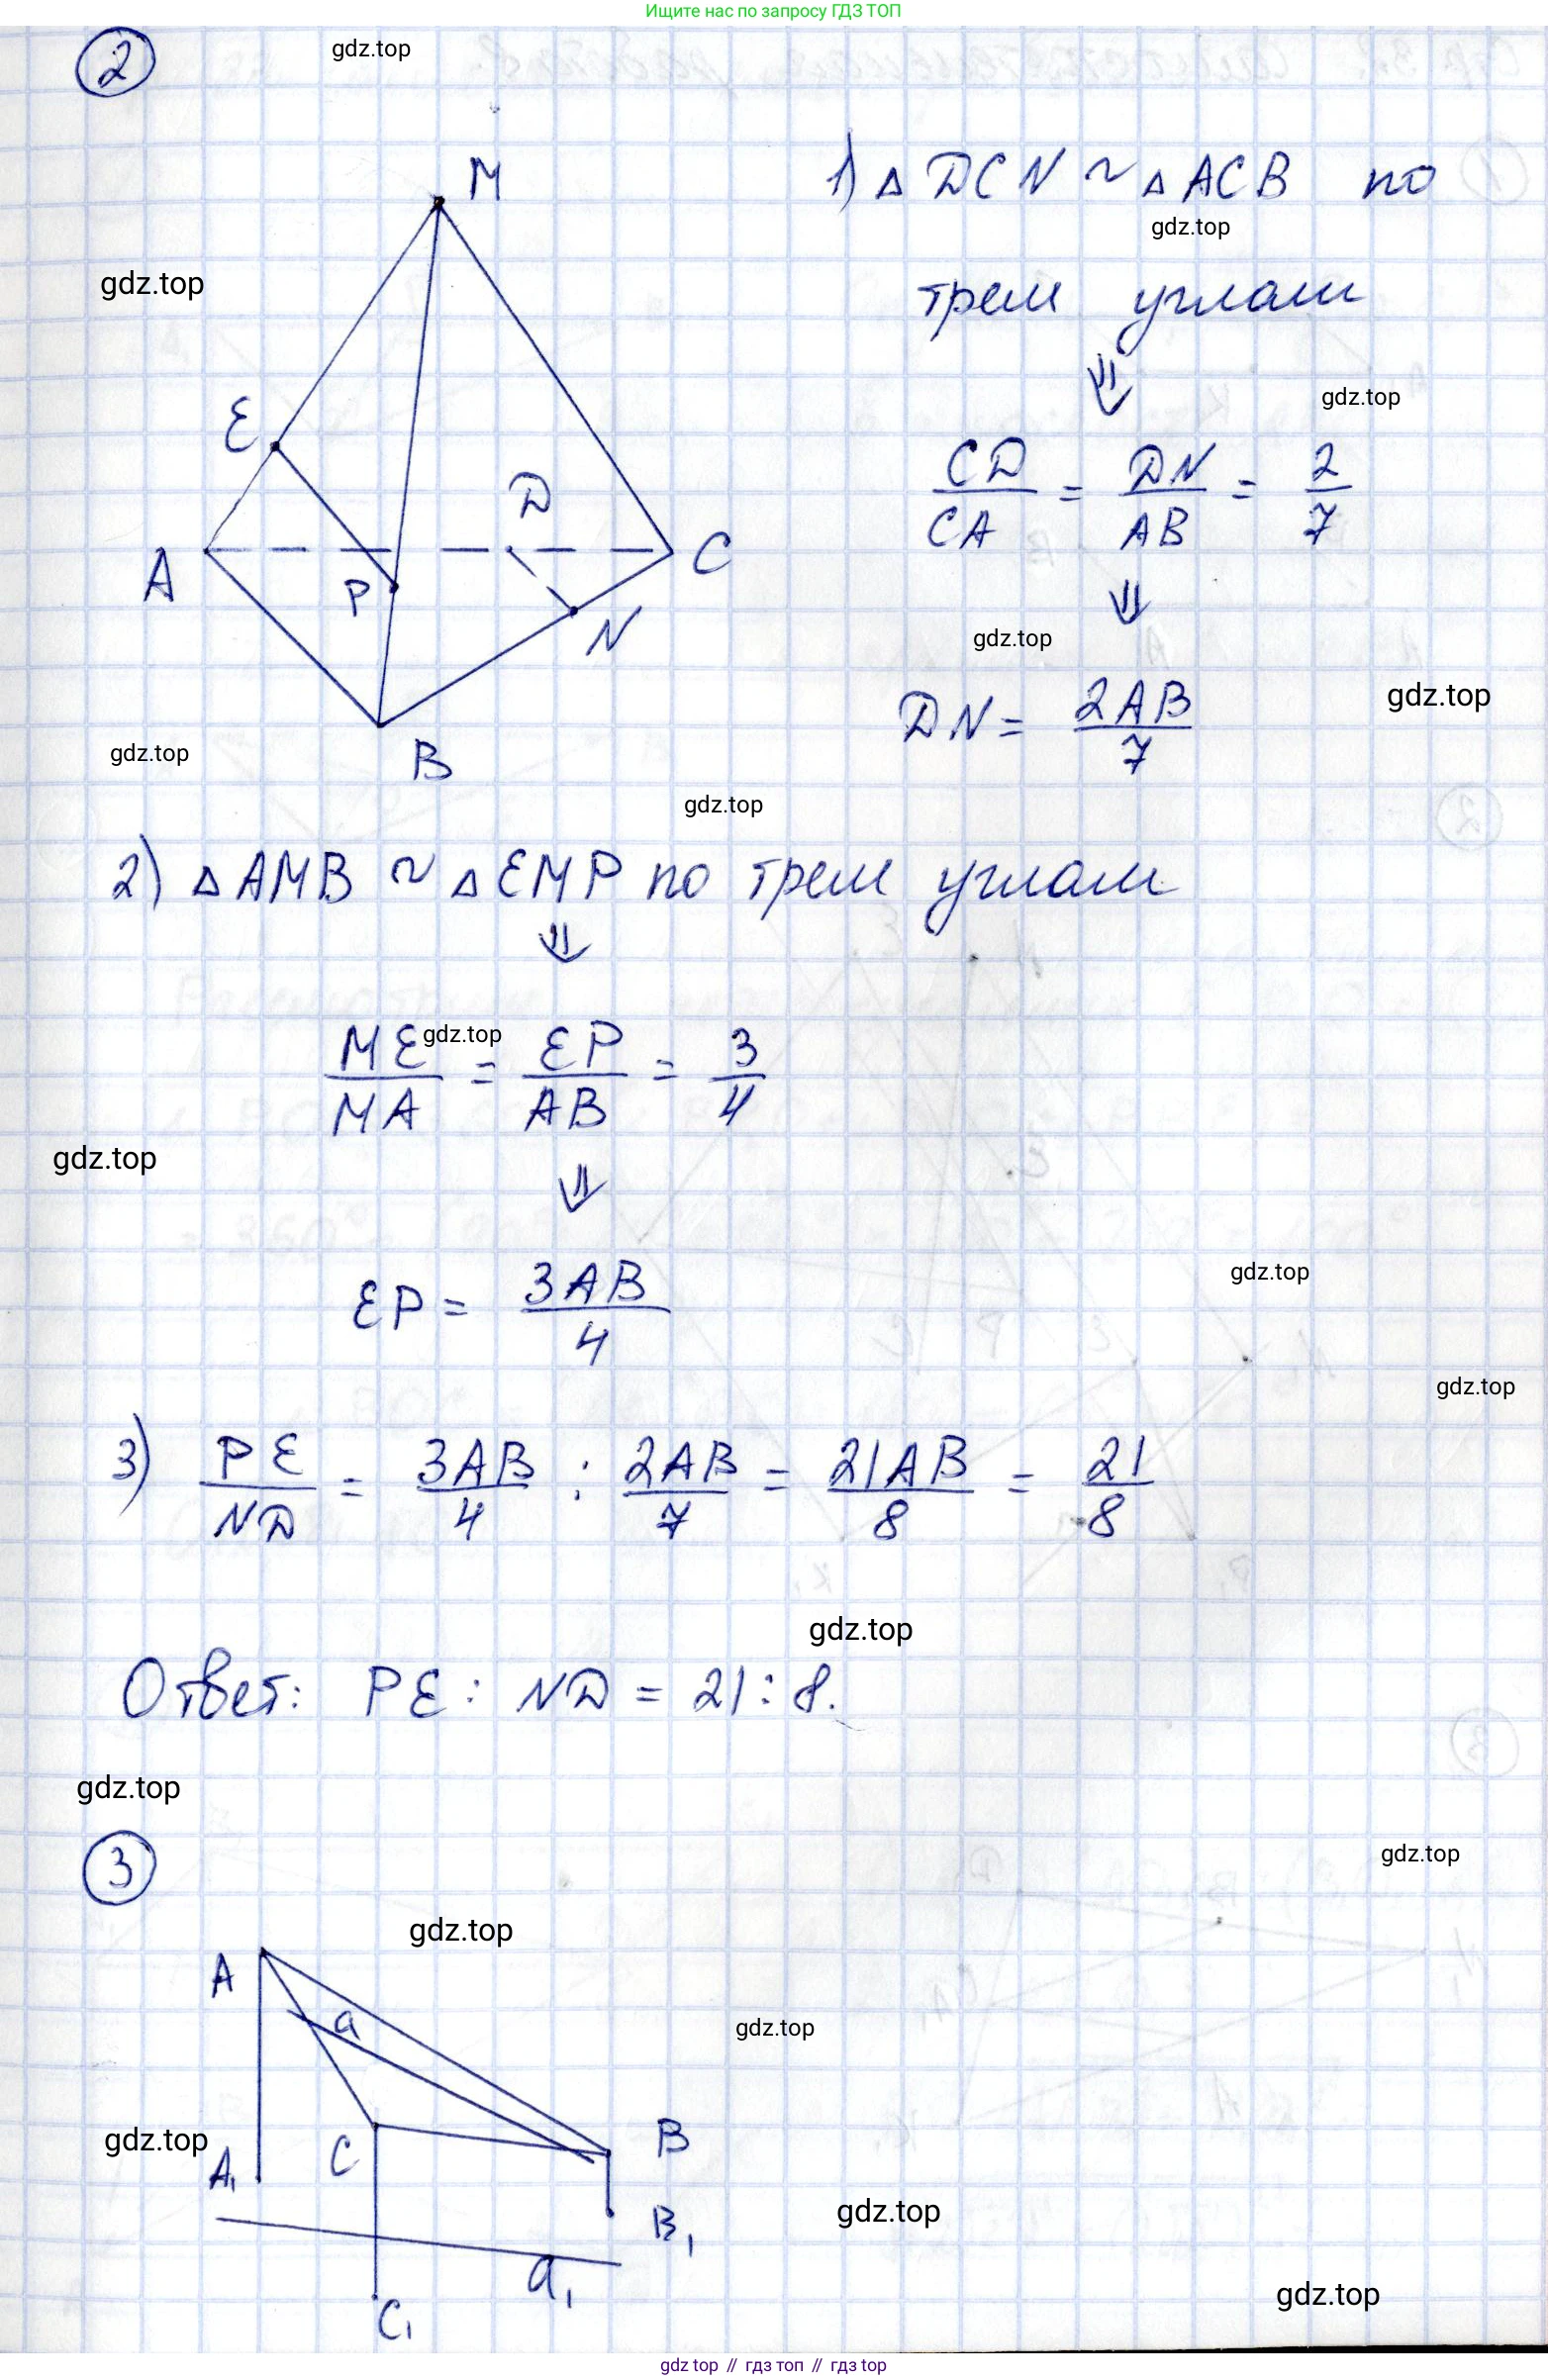 Ищите нас по запросу ГДЗ ТОП
2
gdz.top
M
1) △ DCN ~ △ ACB по
gdz.top
gdz.top
трем углам
⇓
gdz.top
E
CD/CA = DN/AB = 2/7
D
A
P
C
⇓
N
gdz.top
DN = 2AB/7
gdz.top
gdz.top
B
gdz.top
2) △ AMB ~ △ EMP по трем углам
⇓
ME/MA = EP/AB = 3/4
gdz.top
⇓
gdz.top
EP = 3AB/4
gdz.top
gdz.top
3) PE/ND = 3AB/4 : 2AB/7 = 21AB/8 = 21/8
gdz.top
Ответ: PE : ND = 21 : 8.
gdz.top
3
gdz.top
gdz.top
A
a
gdz.top
gdz.top
C
B
A₁
gdz.top
B₁
a₁
gdz.top
C₁
gdz top // гдз топ // гдз top